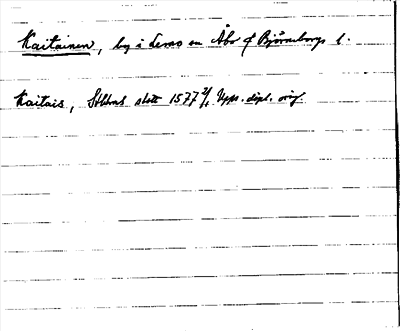 Kaitainen, by i Lemo sn Åbo o Björneborgs l.
Kaitais, Sölkas slott 1577 2/1 Upps. dipl. orig.